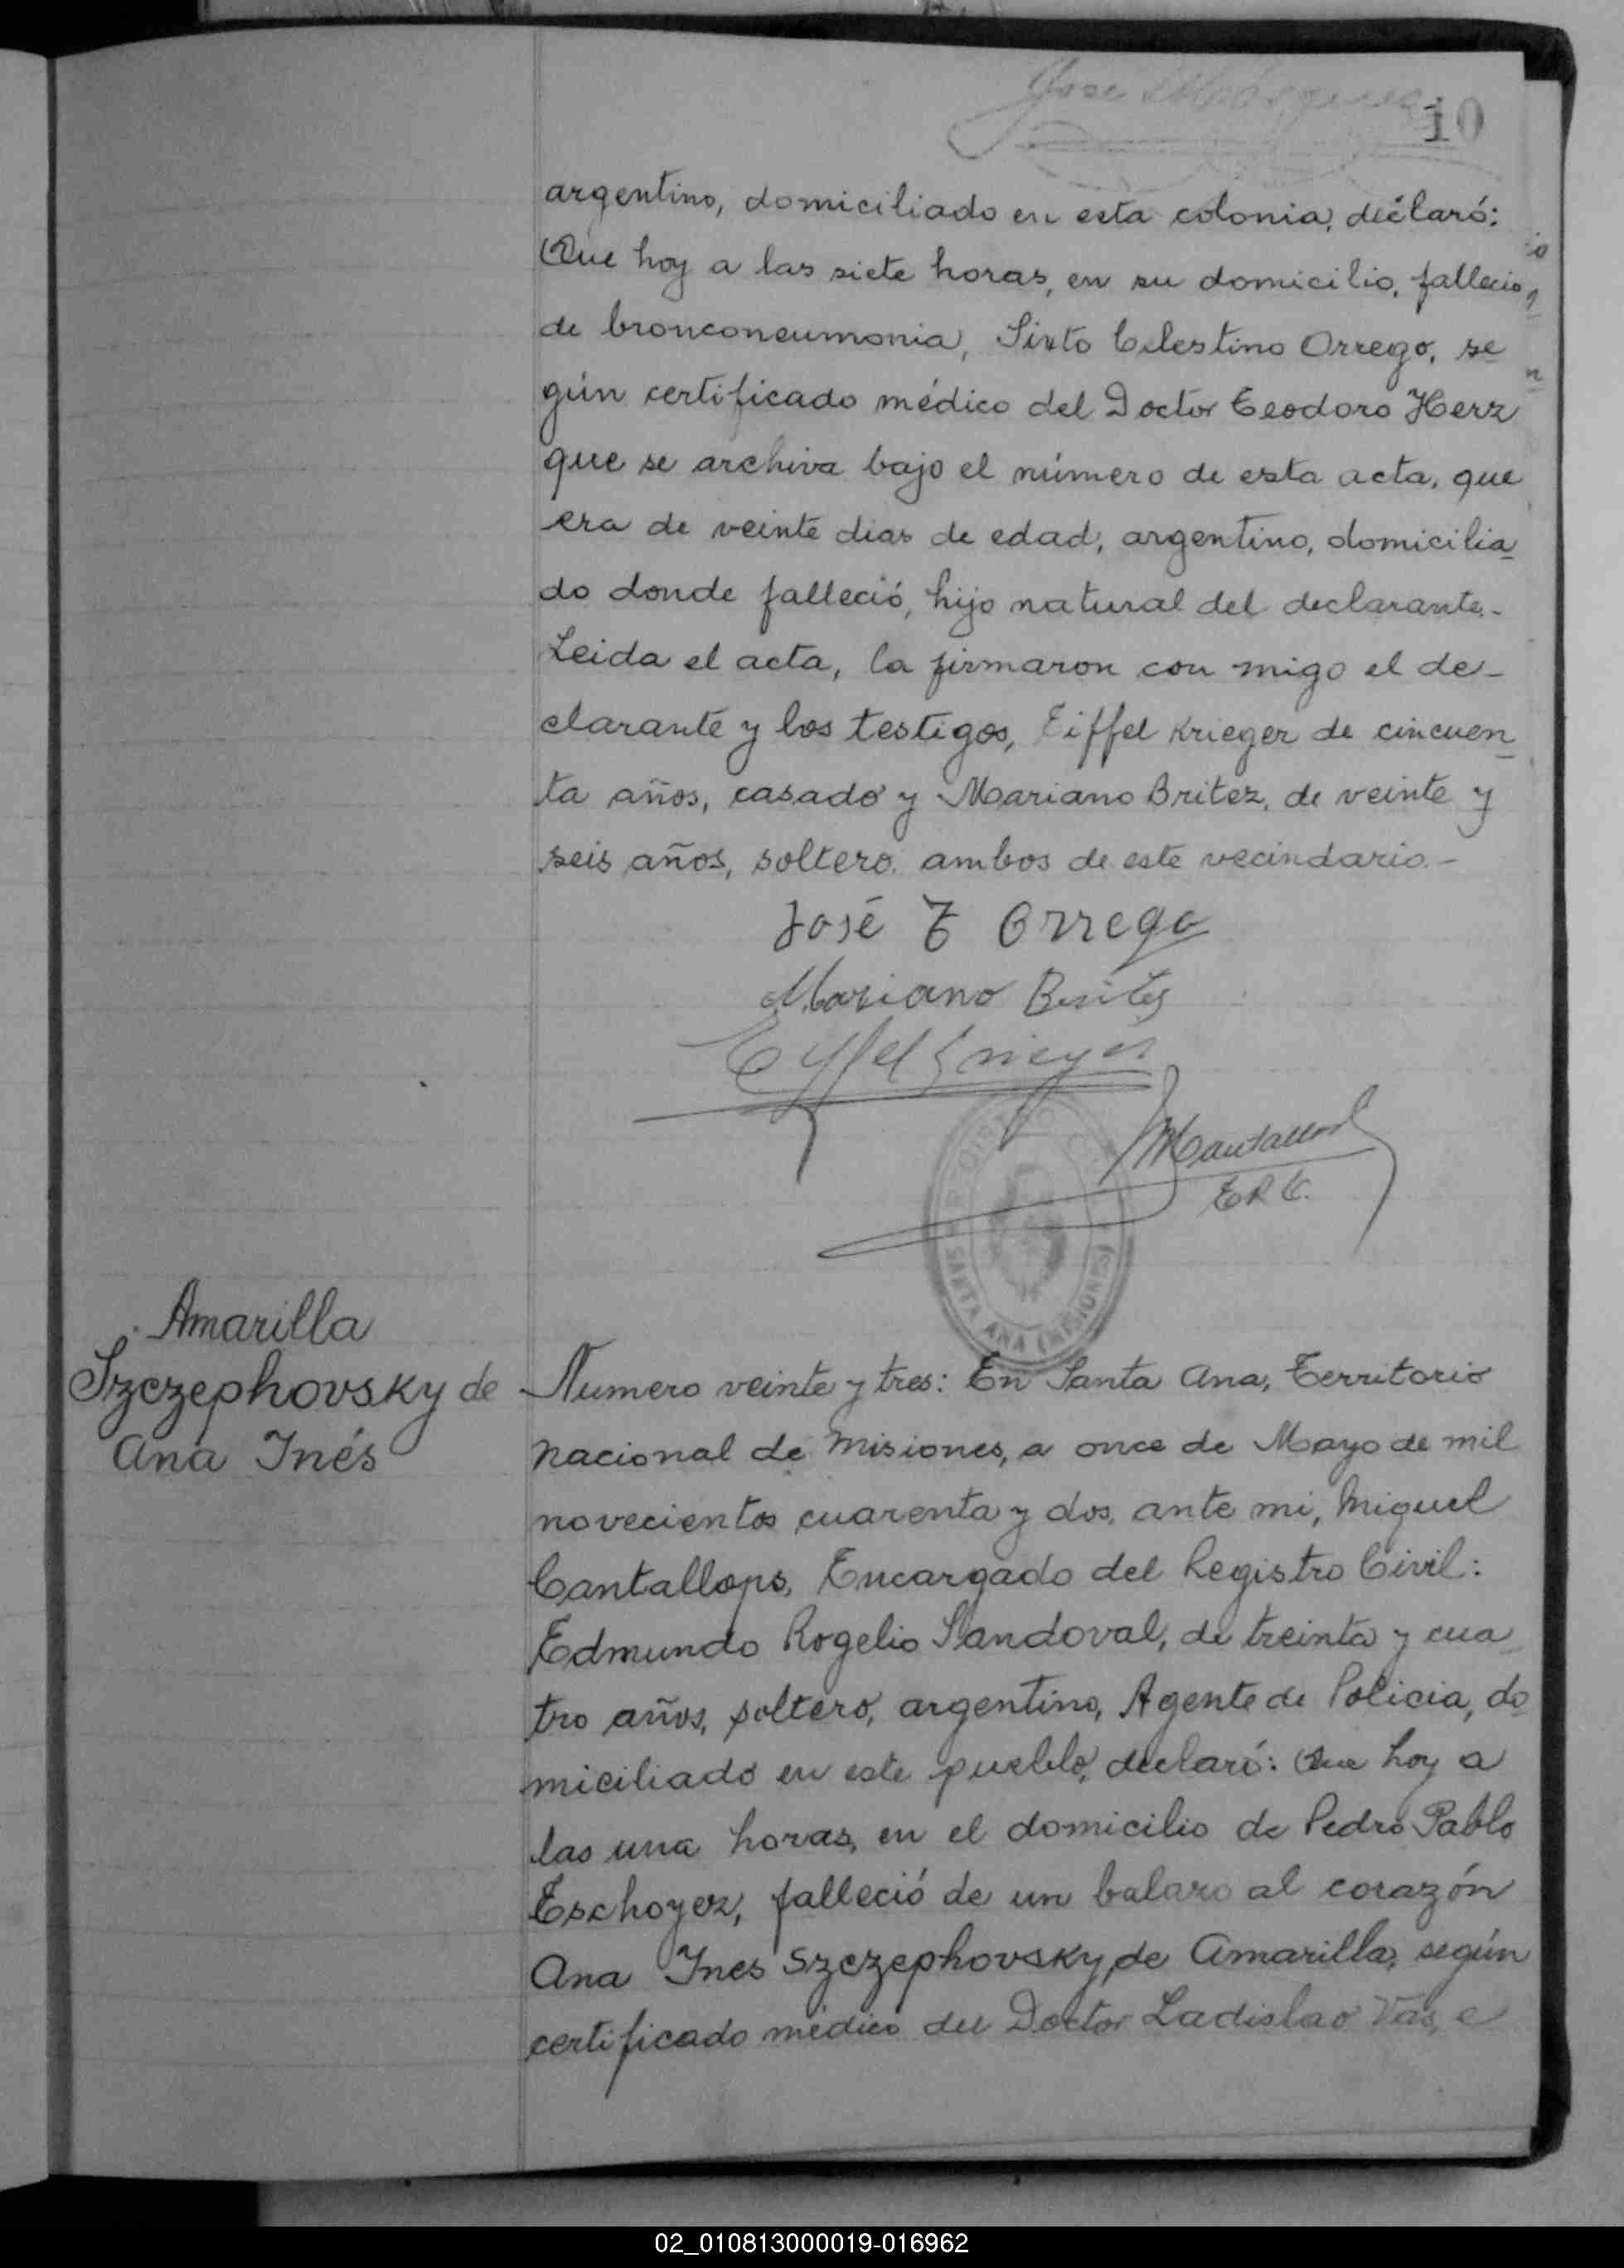 10
argentino, domiciliado en esta colonia, declaró:
Que hoy a las siete horas, en su domicilio, fallecio
de bronconeumonia, Sixto Celestino Orrego, se
gún certificado médico del Doctor Teodoro Herz
que se archiva bajo el número de esta acta, que
era de veinte dias de edad, argentino, domicilia
do donde falleció, hijo natural del declarante.-
Leida el acta, la firmaron con migo el de-
clarante y los testigos, Eiffel Krieger de cincuen
ta años, casado y Mariano Britez, de veinte y
seis años, soltero. ambos de este vecindario.-
José T Orrego
Mariano
Eyffel Krieger
E R C.
SANTA ANA (MISIONES)
Amarilla
Szczephovsky de
Ana Inés
Numero veinte y tres: En Santa Ana, Territorio
Nacional de Misiones, a once de Mayo de mil
novecientos cuarenta y dos, ante mi, Miguel
Cantallops, Encargado del Registro Civil:
Edmundo Rogelio Sandoval, de treinta y cua
tro años, soltero, argentino, Agente de Policia, do
miciliado en este pueblo, declaró: Que hoy a
las una horas, en el domicilio de Pedro Pablo
Eschoyez, falleció de un balazo al corazón
Ana Ines Szczephovsky de Amarilla, según
certificado médico del Doctor Ladislao Vas, e
02_010813000019-016962